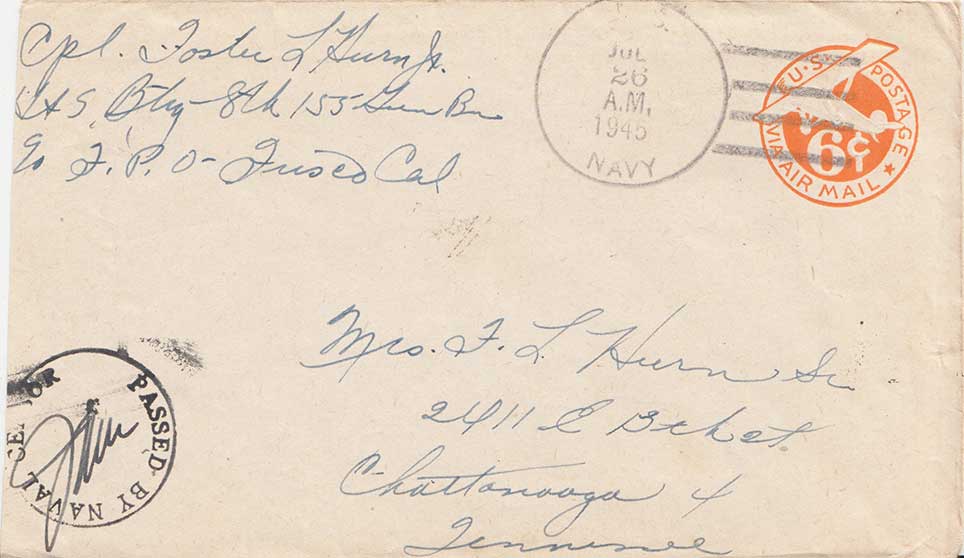 Cpl. Foster L Hurn Jr.
H & S. Btry 8th 155 Gun Bn
F.P.O Frisco Cal
U.S.
JUL
26
A.M.
1945
NAVY
U.S. POSTAGE
6¢
VIA AIR MAIL
Mrs. F. L. Hurn Sr
2411 E 13th st.
Chattanooga 4
Tennessee
PASSED BY NAVAL CENSOR